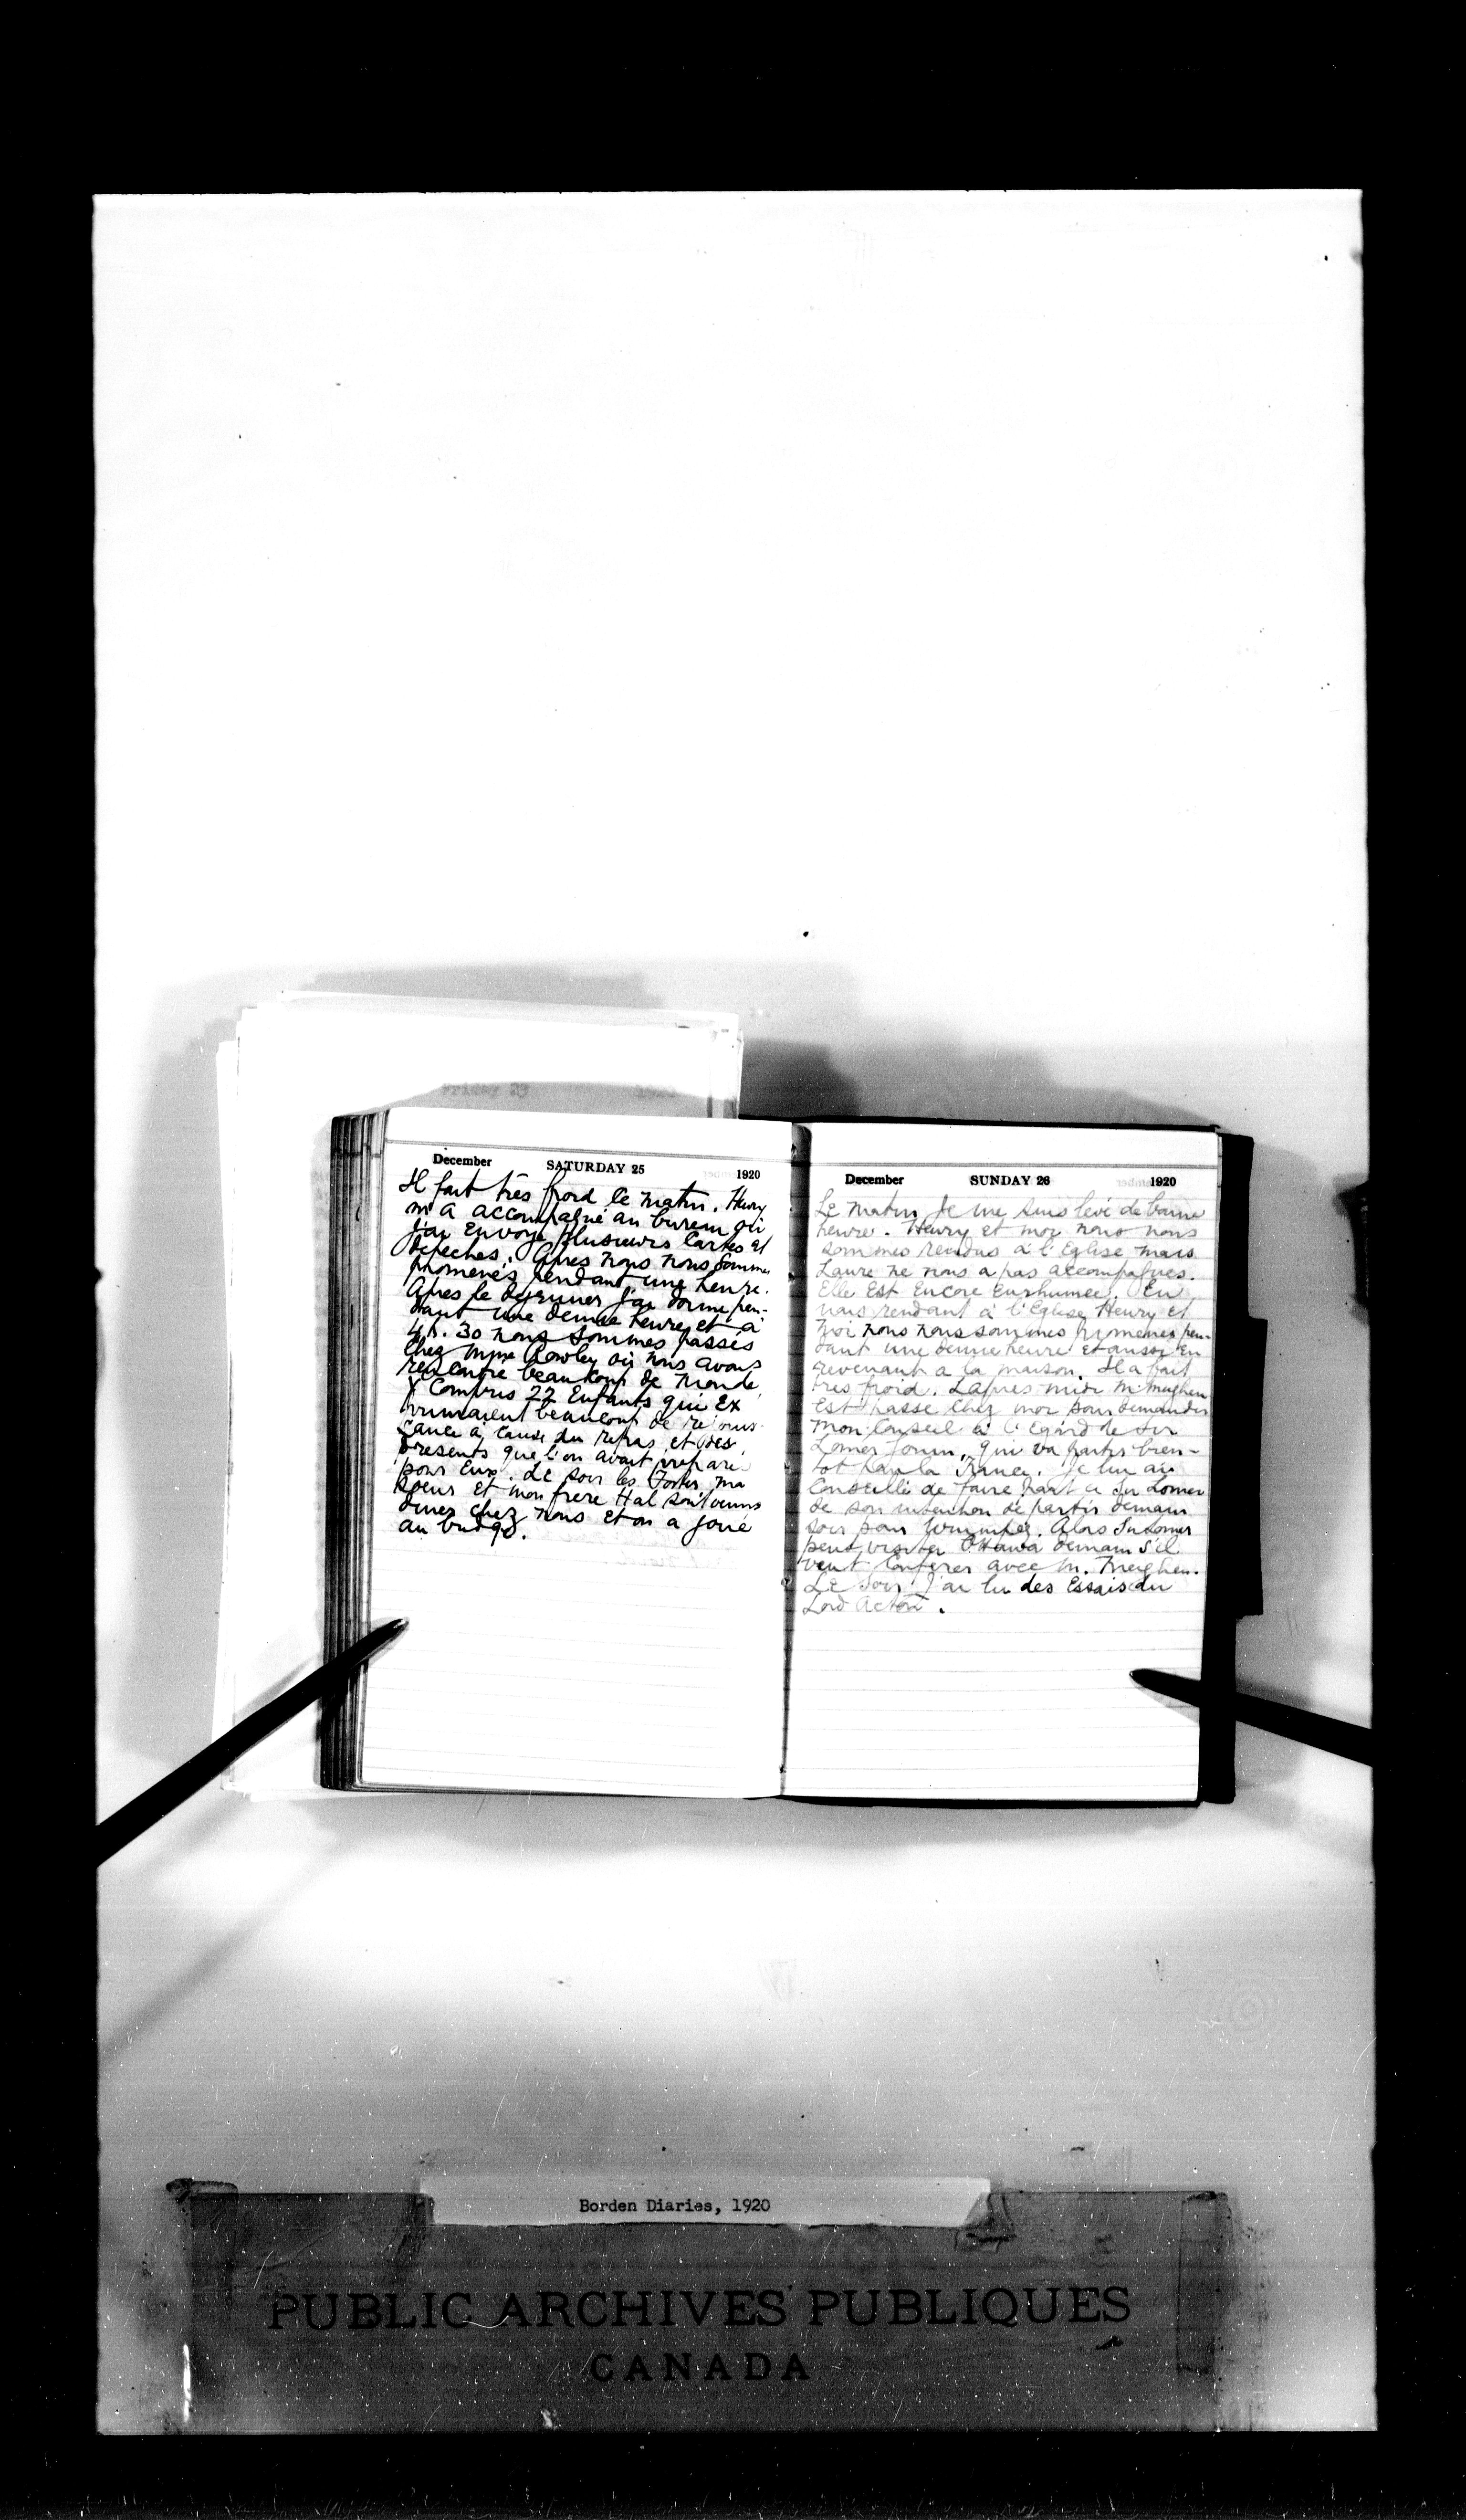 Friday 23 192
December SATURDAY 25 1920
Il fait très froid le matin. Henry
m'a accompagné au bureau où
j'ai envoyé plusieurs cartes et
depeches. Apres nous nous sommes
promenés pendant une heure.
Apres le dejeuner j'ai dormi pen-
dant une demie heure et a
4 h. 30 nous sommes passés
chez Mme Rowley où nous avons
rencontré beaucoup de monde
y compris 22 enfants qui ex
primaient beaucoup de rejouis-
sance a cause du repas et des
presents que l'on avait preparé
pour eux. Le soir les Foster ma
soeur et mon frere Hal sont venus
diner chez nous et on a joué
au bridge.
December SUNDAY 26 1920
Le matin je me suis levé de bonne
heure. Henry et moi nous nous
sommes rendus à l'Eglise mais
Laure ne nous a pas accompagnes.
Elle est encore enrhumee. En
nous rendant à l'Eglise Henry et
moi nous nous sommes promenes pen-
dant une demie heure et aussi en
revenant a la maison. Il a fait
tres froid. L'apres midi M Meighen
est passé chez moi pour demander
mon conseil à l'egard de Sir
Lomer Gouin, qui va partir bien-
tot pour la France. Je lui ai
conseillé de faire part a Sir Lomer
de son intention de partir demain
soir pour Winnipeg. Alors Sir Lomer
peut visiter Ottawa demain s'il
veut conferer avec M. Meighen.
Le soir j'ai lu des Essais du
Lord Acton.
Borden Diaries, 1920
PUBLIC ARCHIVES PUBLIQUES
CANADA